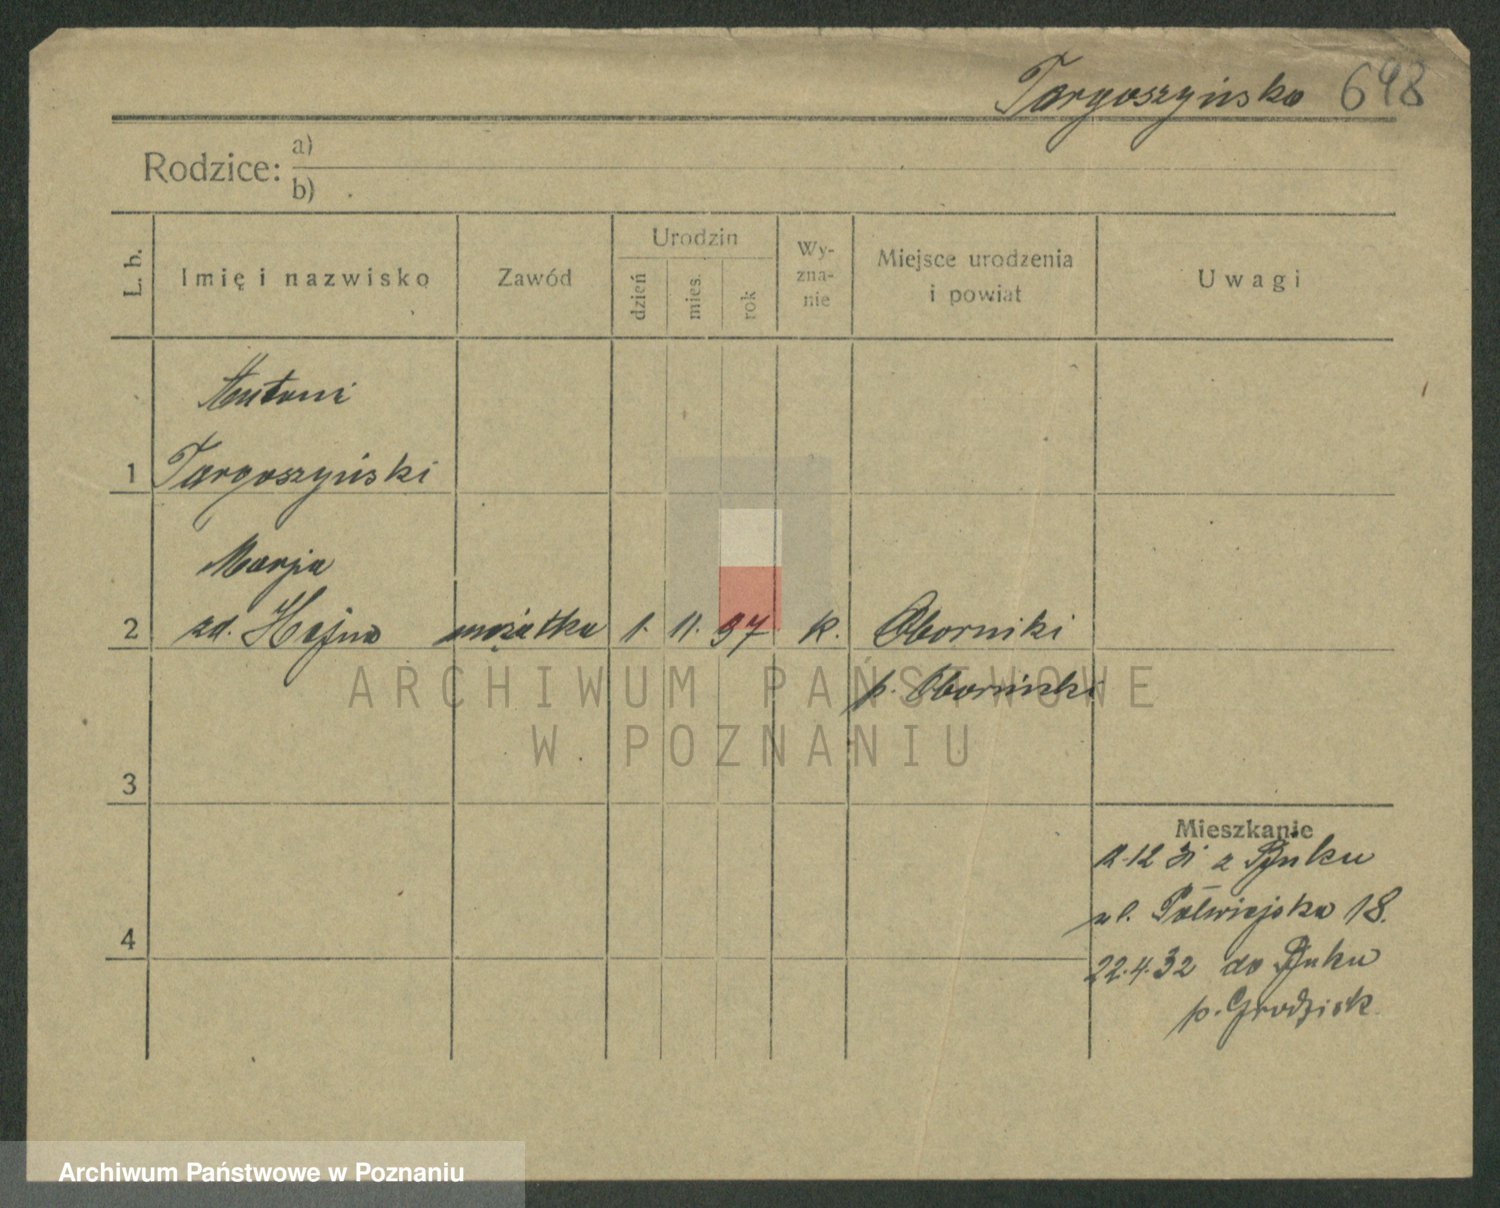 Targoszyńska 698
Rodzice: a)
b)
L. b.
Imię i nazwisko
Zawód
Urodzin
dzień
mies.
rok
Wy-
zna-
nie
Miejsce urodzenia
i powiat
Uwagi
Antoni
1 Targoszyński
Marja
2 zd. mężatka 1. 11. 97 k. Oborniki
p. Oborniki
ARCHIWUM PAŃSTWOWE
W POZNANIU
3
Mieszkanie
2.12 31 z Buku
ul. Półwiejska 18.
4
22.4.32 do Buku
p. Grodzisk
Archiwum Państwowe w Poznaniu